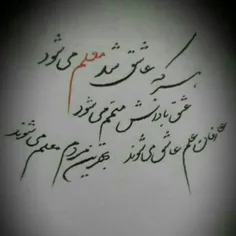 هر که عاشق شد معلم می‌شود
عشق با دانش متمم می‌شود
عارفان علم عاشق می‌شوند
بهترین مردم معلم می‌شوند